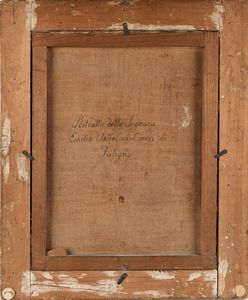 Ritratto della Signora
Emilia Valentini-Correi di
Fuligno